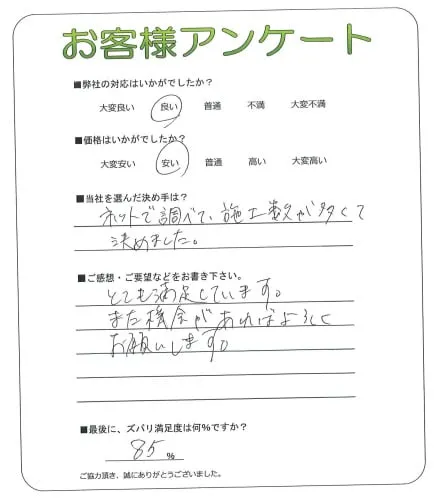 お客様アンケート
■弊社の対応はいかがでしたか？
大変良い 良い 普通 不満 大変不満
■価格はいかがでしたか？
大変安い 安い 普通 高い 大変高い
■当社を選んだ決め手は？
ネットで調べて、施工数が多くて
決めました。
■ご感想・ご要望などをお書き下さい。
とても満足しています。
また機会があればよろしく
お願いします。
■最後に、ズバリ満足度は何％ですか？
85 %
ご協力頂き、誠にありがとうございました。